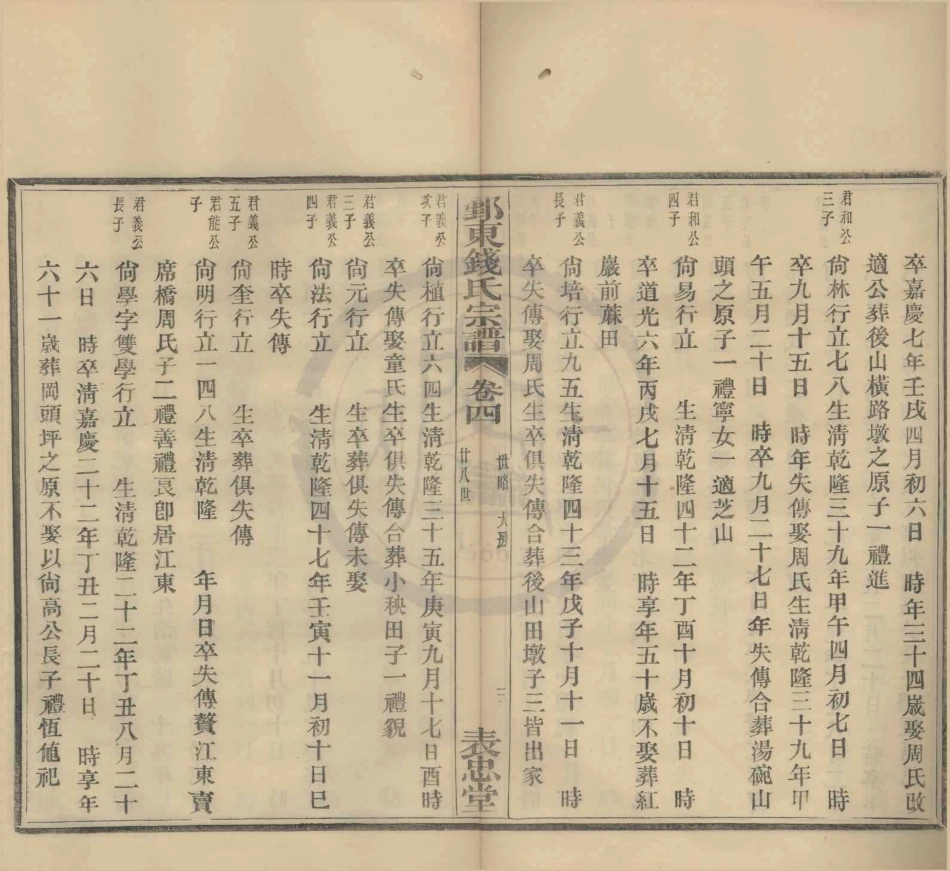 卒嘉慶七年壬戌四月初六日　時年三十四歲娶周氏改
適公葬後山橫路墩之原子一禮進
君和公三子
尙林行立七八生淸乾隆三十九年甲午四月初七日　時
卒九月十五日　時年失傳娶周氏生淸乾隆三十九年甲
午五月二十日　時卒九月二十七日年失傳合葬湯碗山
頭之原子一禮寧女一適芝山
君和公四子
尙易行立　生淸乾隆四十二年丁酉十月初十日　時
卒道光六年丙戌七月十五日　時享年五十歲不娶葬紅
巖前蔴田
君義公長子
尙培行立九五生淸乾隆四十三年戊子十月十一日　時
卒失傳娶周氏生卒俱失傳合葬後山田墩子三皆出家
鄞東錢氏宗譜　卷四
世略　大房
廿八世
三
表忠堂
君義公次子
尙植行立六四生淸乾隆三十五年庚寅九月十七日酉時
卒失傳娶童氏生卒俱失傳合葬小秧田子一禮貌
君義公三子
尙元行立　生卒葬俱失傳未娶
君義公四子
尙法行立　生淸乾隆四十七年壬寅十一月初十日巳
時卒失傳
君義公五子
尙奎行立　生卒葬俱失傳
君能公子
尙明行立一四八生淸乾隆　年月日卒失傳贅江東賣
席橋周氏子二禮善禮良卽居江東
君義公長子
尙學字雙學行立　生淸乾隆二十二年丁丑八月二十
六日　時卒淸嘉慶二十二年丁丑二月二十日　時享年
六十一歲葬岡頭坪之原不娶以尙高公長子禮恆他祀